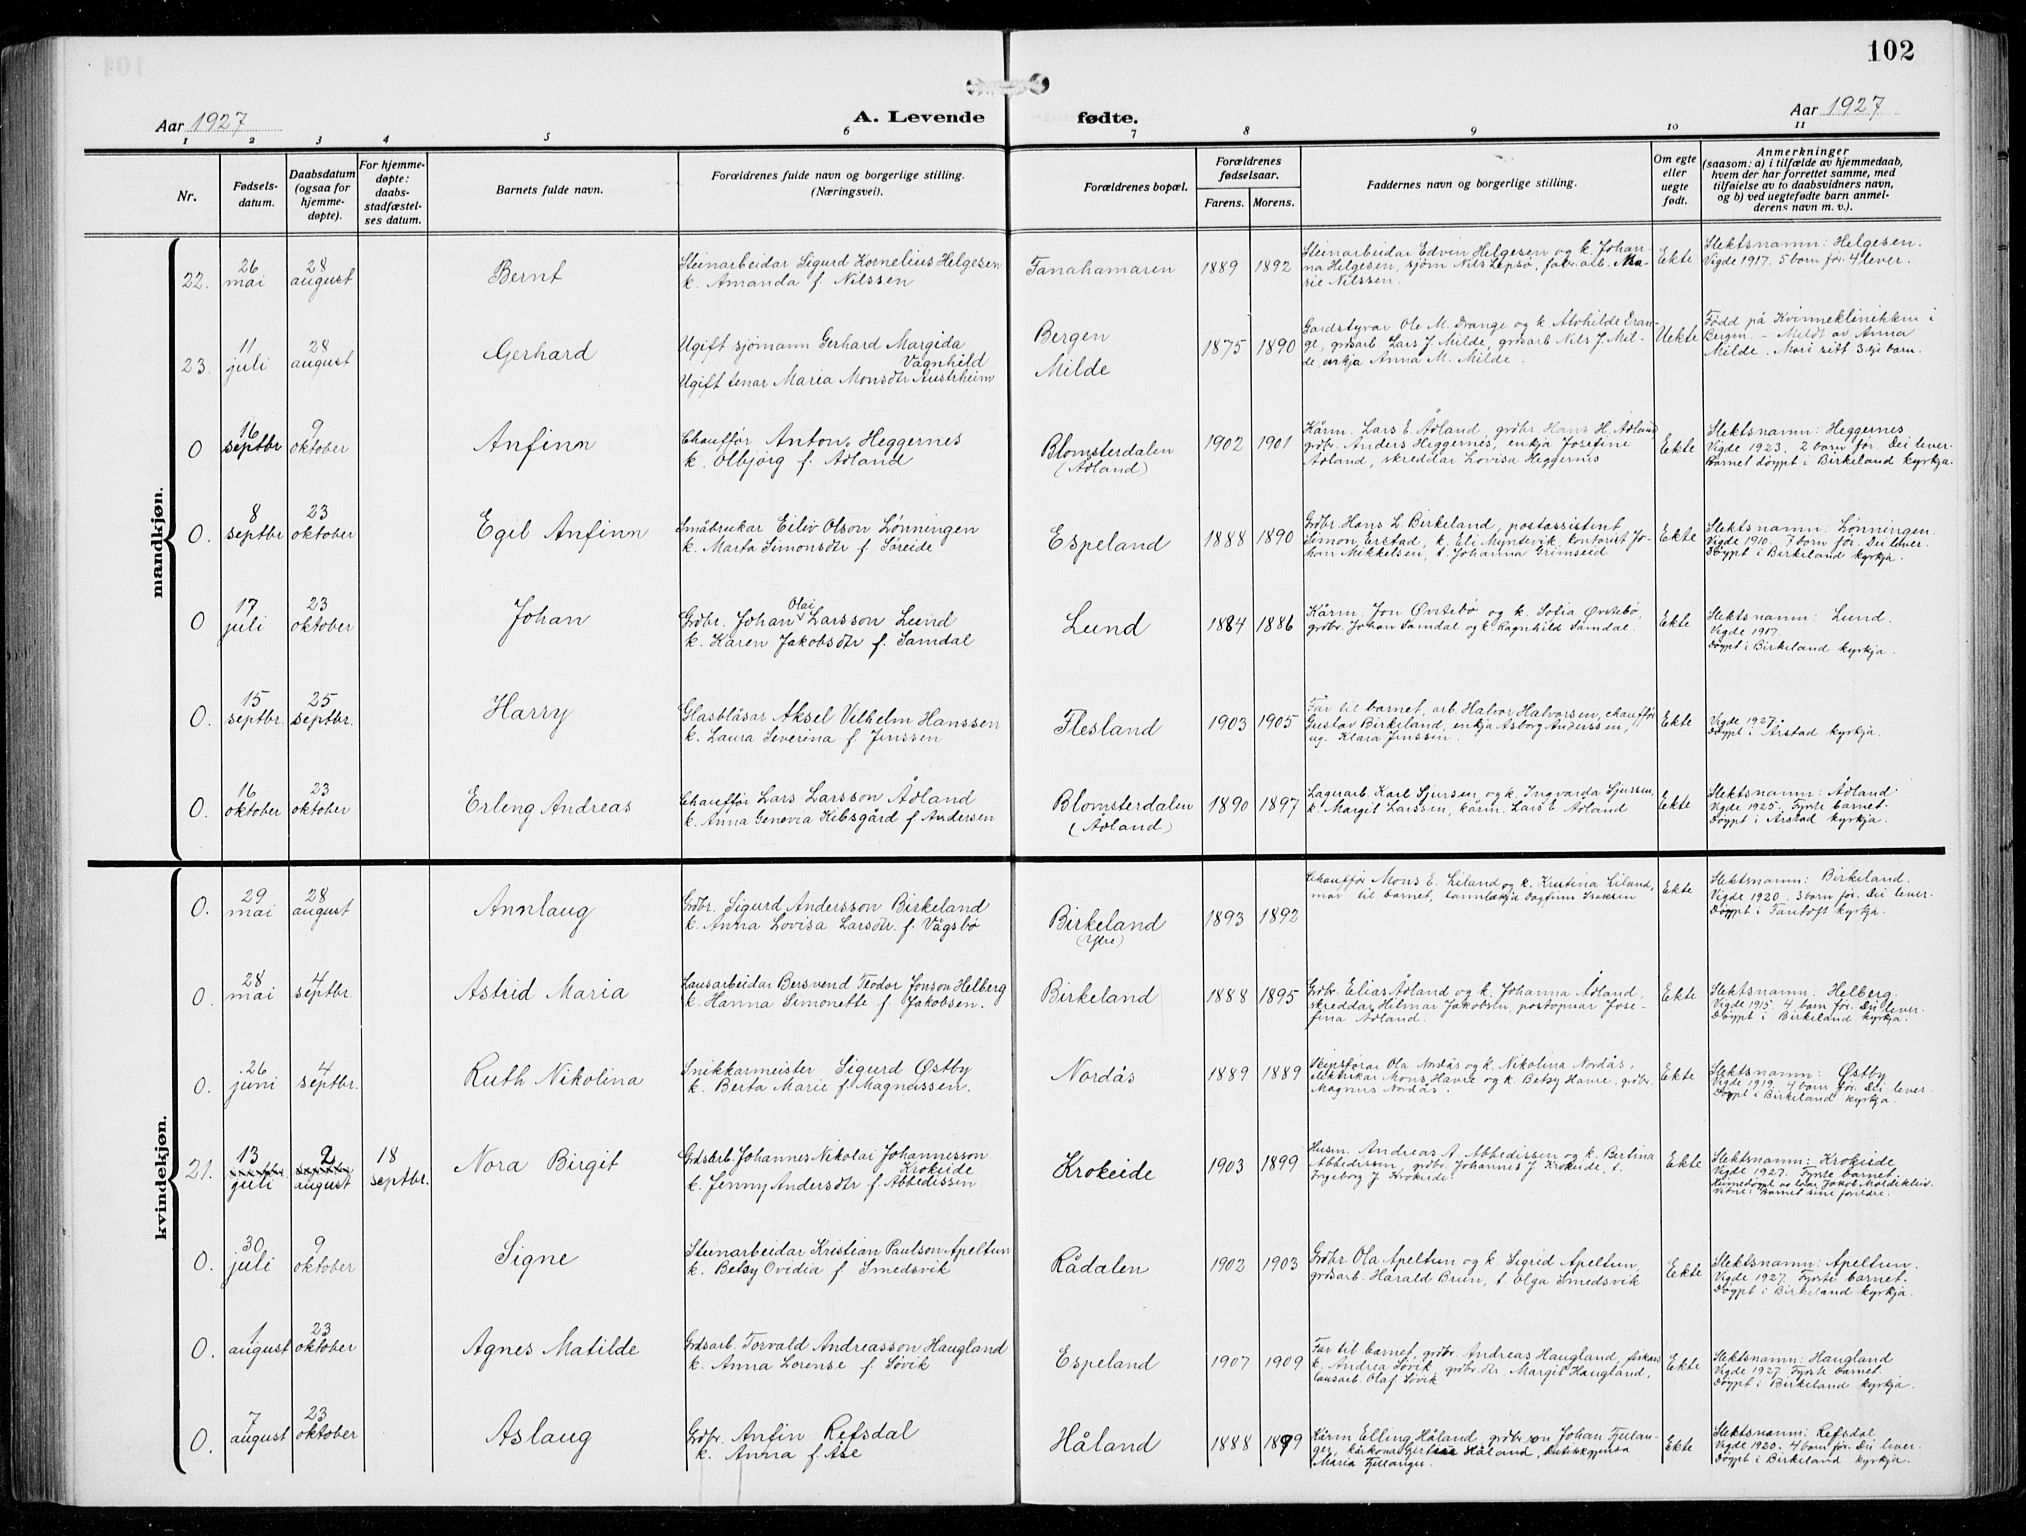 102
Aar 1927
A. Levende fødte.
Aar 1927
1 2 3 4 5 6 7 8 9 10 11
Nr.
Fødsels-
datum.
Daabsdatum
(ogsaa for
hjemme-
døpte).
For hjemme-
døpte:
daabs-
stadfæstel-
ses datum.
Barnets fulde navn.
Forældrenes fulde navn og borgerlige stilling.
(Næringsvei).
Forældrenes bopæl.
Forældrenes
fødselsaar.
Farens. Morens.
Faddernes navn og borgerlige stilling.
Om egte
eller
uegte
født.
Anmerkninger
(saasom: a) i tilfælde av hjemmedaab,
hvem der har forrettet samme, med
tilføielse av to daabsvidners navn,
og b) ved uegtefødte barn anmel-
derens navn m. v.).
mandkjøn.
22.
26
mai
28
august
Bernt
Steinarbeidar Sigurd Kornelius Helgesen
k. Amanda f. Nilssen
Fanahamaren
1889 1892
Steinarbeidar Edvin Helgesen og k. Johan-
na Helgesen, sjøm Nils Lepsø, fabr.arb. Ma-
rie Nilssen.
Ekte
Slektsnamn: Helgesen.
Vigde 1917. 5 born før. 4 lever.
23.
11
juli
28
august
Gerhard
Ugift sjømann Gerhard Margida
Vagnhild
Ugift tenar Maria Monsdtr Austrheim
Bergen
Milde
1875 1890
Gardstyrar Ole M. Drange og k. Alvhilde Dran-
ge, grdsarb. Lars J Milde, grdsarb Nils J Mil-
de, enkja Anna M. Milde.
Uekte
Fødd på Kvinneklinikken i
Bergen. - Meldt av Anna
Milde. Mori sitt 3dje barn.
0
16
septbr
9
oktober
Anfinn
Chauffør Anton Heggernes
k. Olbjørg f. Adland
Blomsterdalen
(Ådland)
1902 1901
Kårm. Lars E. Ådland, grdbr Hans H. Adland
grdbr. Anders Heggernes, enkja Josefine
Ådland, skreddar Lovisa Heggernes
Ekte
Slektsnamn: Heggernes
Vigde 1923. 2 born før. Dei lever.
Barnet døypt i Birkeland kyrkja.
0.
8
septbr
23
oktober
Egil Anfinn
Småbrukar Eiliv Olson Lønningen
k. Marta Simonsdtr f. Søreide
Espeland
1888 1890
Grdbr. Hans L. Birkeland, postassistent
Simon Erstad, k. Eli Myntevik, kontorist Jo-
han Mikkelsen, t. Johanna Grimseid
Ekte
Slektsnamn: Lønningen.
Vigde 1910. 7 born før. Dei lever.
Døypt i Birkeland kyrkja.
0
17
juli
23
oktober
Johan
Olai
Grdbr. Johan Larsson Lund
k. Karen Jakobsdtr f. Samdal
Lund
1884 1886
Kårm. Jon Øvstebø og k. Sofia Øvstebø,
grdbr. Johan Samdal og k. Ragnhild Samdal.
Ekte
Slektsnamn: Lund.
Vigde 1917.
Døypt i Birkeland kyrkja.
0.
15
septbr.
25
septbr.
Harry
Glasblåsar Aksel Vilhelm Hanssen
k. Laura Severina f. Jenssen
Flesland
1903 1905
Far til barnet, arb. Halvor Halvorsen, chauffør
Gustav Birkeland, enkja Asborg Anderssen,
ug. Klara Jenssen.
Ekte
Vigde 1927.
Døypt i Årstad kyrkja.
0.
16
oktober
23
oktober
Erling Andreas
Chauffør Lars Larsson Ådland
k. Anna Genovia Kibsgård f. Andersen
Blomsterdalen
(Ådland)
1890 1897
Lagerarb. Karl Sjursen, og k. Ingvarda Sjursen,
k. Margit Larssen, kårm. Lars E Adland
Ekte
Slektsnamn: Ådland
Vigde 1925. Fyrste barnet.
Døypt i Årstad kyrkja.
kvindekjøn.
0.
29
mai
28
august
Annlaug
Grdbr. Sigurd Andersson Birkeland
k. Anna Lovisa Larsdtr. f. Vågsbø
Birkeland
(Ytre)
1893 1892
Chauffør Mons E. Liland og k. Kristina Liland,
mor til barnet, tannlækja Dagfinn Isaksen
Ekte
Slektsnamn: Birkeland.
Vigde 1920. 3 born før. Dei lever.
Døypt i Fantoft kyrkja.
0.
28
mai
4
septbr.
Astrid Maria
Lausarbeidar Bersvend Teodor Jonson Helberg
k. Hanna Simonette f. Jakobsen.
Birkeland
1888 1895
Grdbr. Elias Ådland og k. Johanna Ådland,
skreddar Hilmar Jakobsen, postopnar Jose-
fina Ådland.
Ekte
Slektsnamn: Helberg.
Vigde 1915. 4 born før. Dei lever.
Døypt i Birkeland kyrkja.
0.
26
juni
4
septbr.
Ruth Nikolina
Snikkarmeister Sigurd Østby
k. Berta Marie f. Magnussen.
Nordås
1889 1889
Skipsførar Ola Nordås og k. Nikolina Nordås,
elektrikar Mons Havre og k. Betsy Havre, grdbr.
Magnus Nordås.
Ekte
Slektsnamn: Østby
Vigde 1919. 4 born før. Dei lever.
Døypt i Birkeland kyrkja.
21.
13
juli
2
august
18
septbr.
Nora Birgit
Grdsarb. Johannes Nikolai Johannesson
Krokeide
k. Jenny Andersdtr f. Abbedissen
Krokeide
1903 1899
Husm. Andreas A. Abbedissen og k. Bertina
Abbedissen, grdbr. Johannes J Krokeide, t.
Ingeborg J. Krokeide.
Ekte
Slektsnamn: Krokeide
Vigde 1927. Fyrste barnet.
Heimedøypt av lærar Jakob Moldekleiv.
Vitne: Barnet sine foreldre.
0.
30
juli
9
oktober
Signe
Steinarbeidar Kristian Paulson Apeltun
k. Betsy Ovidia f. Smedsvik
Rådalen
1902 1903
Grdbr Ola Apeltun og k. Sigrid Apeltun,
grdsarb. Harald Bruin, t Olga Smedsvik
Ekte
Slektsnamn: Apeltun.
Vigde 1927. Fyrste barnet.
Døypt i Birkeland kyrkja.
0.
1
august
23
oktober
Agnes Matilde
Grdsarb. Torvald Andreasson Haugland
k. Anna Lorense f. Søvik
Espeland
1907 1909
Far til barnet, grdbr. Andreas Haugland, fiskar
k. Andrea Søvik, grdbr. dtr Margit Haugland,
lausarb. Olaf Søvik
Ekte
Slektsnamn: Haugland
Vigde 1927. Fyrste barnet.
Døypt i Birkeland kyrkja.
0.
7
august
23
oktober
Aslaug
Grdbr. Anfin Refsdal
k. Anna f. Åse
Håland
1888 1899
Kårm Elling Håland, grdbr son Johan Fjelan-
ger, Håland,
Maria Fjellanger.
Ekte
Slektsnamn: Refsdal.
Vigde 1920. 4 born før. Dei lever.
Døypt i Birkeland kyrkja.